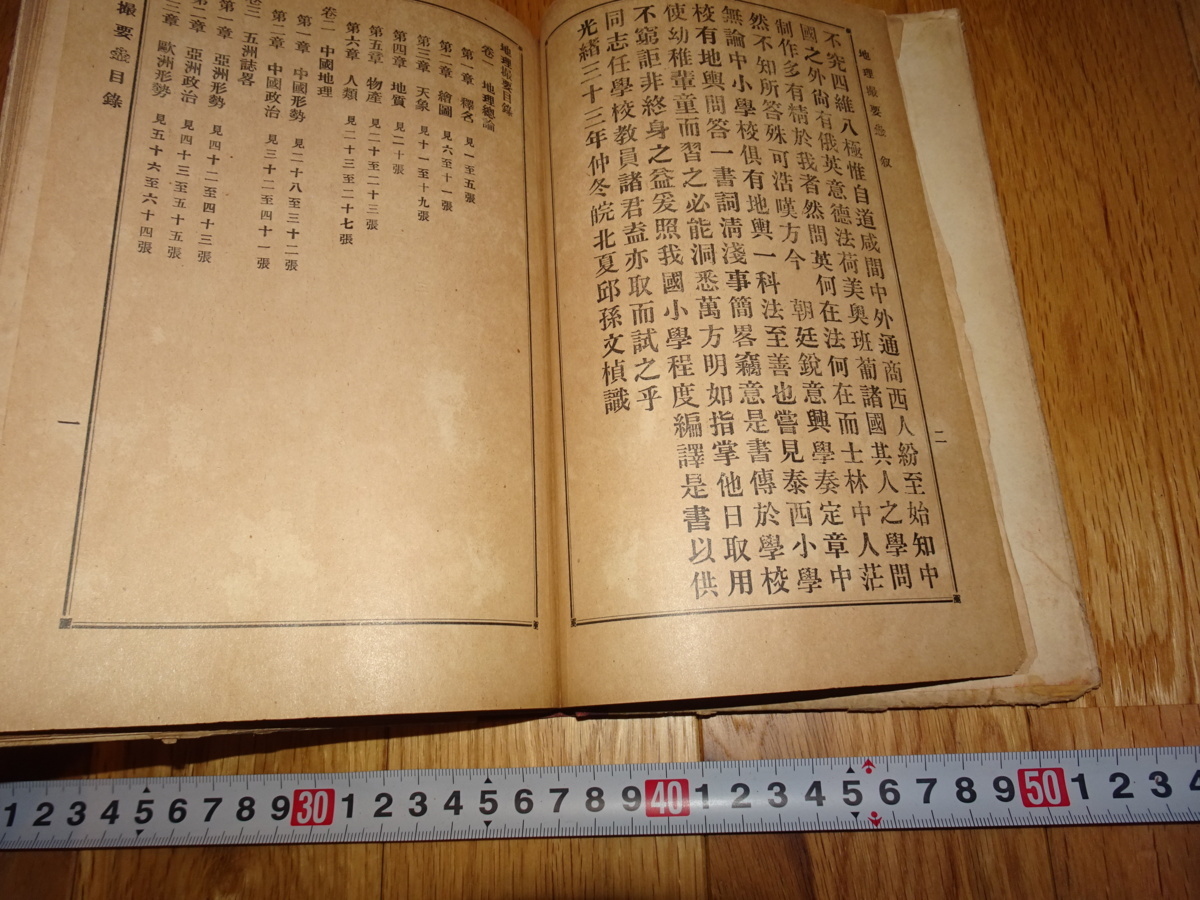 地理撮要 敘
二
不究四維八極惟自道咸間中外通商西人紛至始知中
國之外尙有俄英意德法荷美奧班葡諸國其人之學問
制作多有精於我者然問英何在法何在而士林中人茫
然不知所答殊可浩嘆方今 朝廷銳意興學奏定章中
無論中小學校俱有地輿一科法至善也嘗見泰西小學
校有地輿問答一書詞淸淺事簡畧竊意是書傳於學校
使幼稚輩童而習之必能洞悉萬方明如指掌他日取用
不窮詎非終身之益爰照我國小學程度編譯是書以供
同志任學校教員諸君盍亦取而試之乎
光緖三十三年仲冬皖北夏邱孫文楨識
地理撮要目錄
卷一 地理總論
第一章 釋名 見一至五張
第二章 繪圖 見六至十一張
第三章 天象 見十一至十九張
第四章 地質 見二十張
第五章 物產 見二十至二十三張
第六章 人類 見二十三至二十七張
卷二 中國地理
第一章 中國形勢 見二十八至三十二張
第二章 中國政治 見三十二至四十一張
卷三 五洲誌畧
第一章 亞洲形勢 見四十二至四十三張
第二章 亞洲政治 見四十三至五十五張
三章 歐洲形勢 見五十六至六十四張
撮要 目錄
一
1 2 3 4 5 6 7 8 9 30 1 2 3 4 5 6 7 8 9 40 1 2 3 4 5 6 7 8 9 50 1 2 3 4